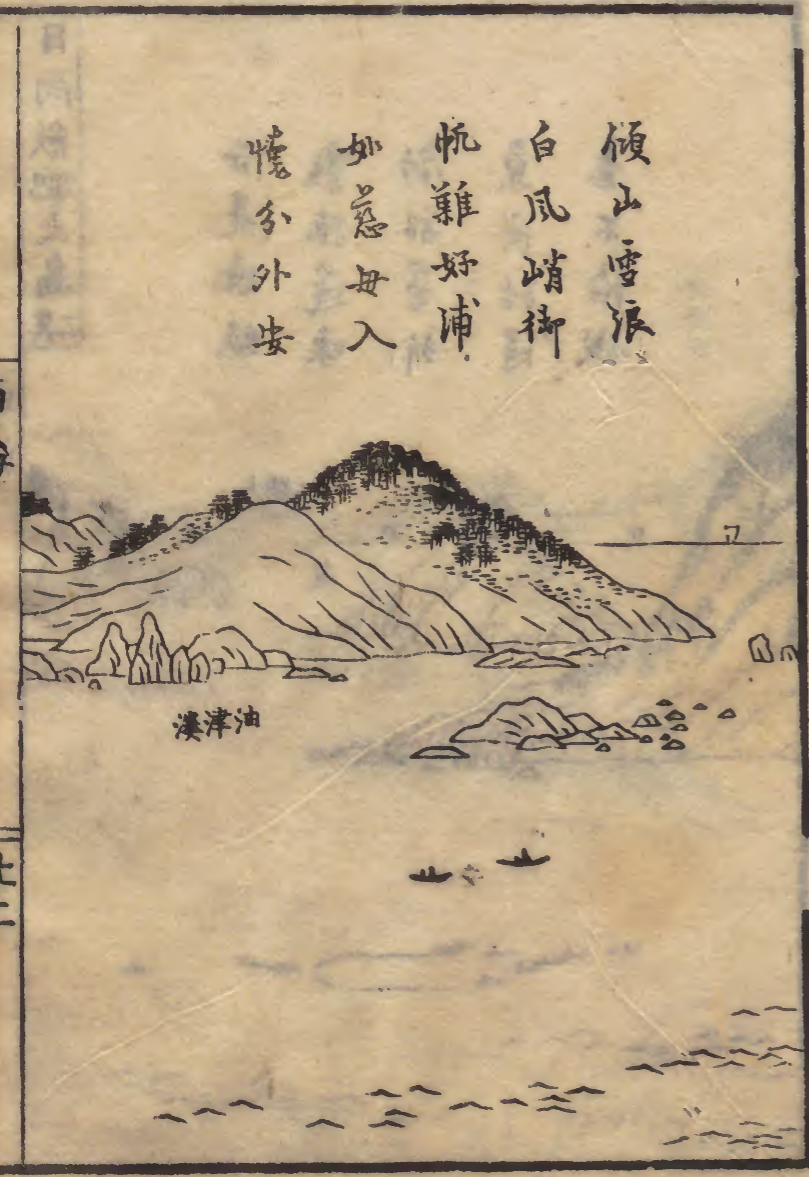 傾山雪浪
白風峭御
帆難好浦
如慈毋入
懐分外安
油津湊